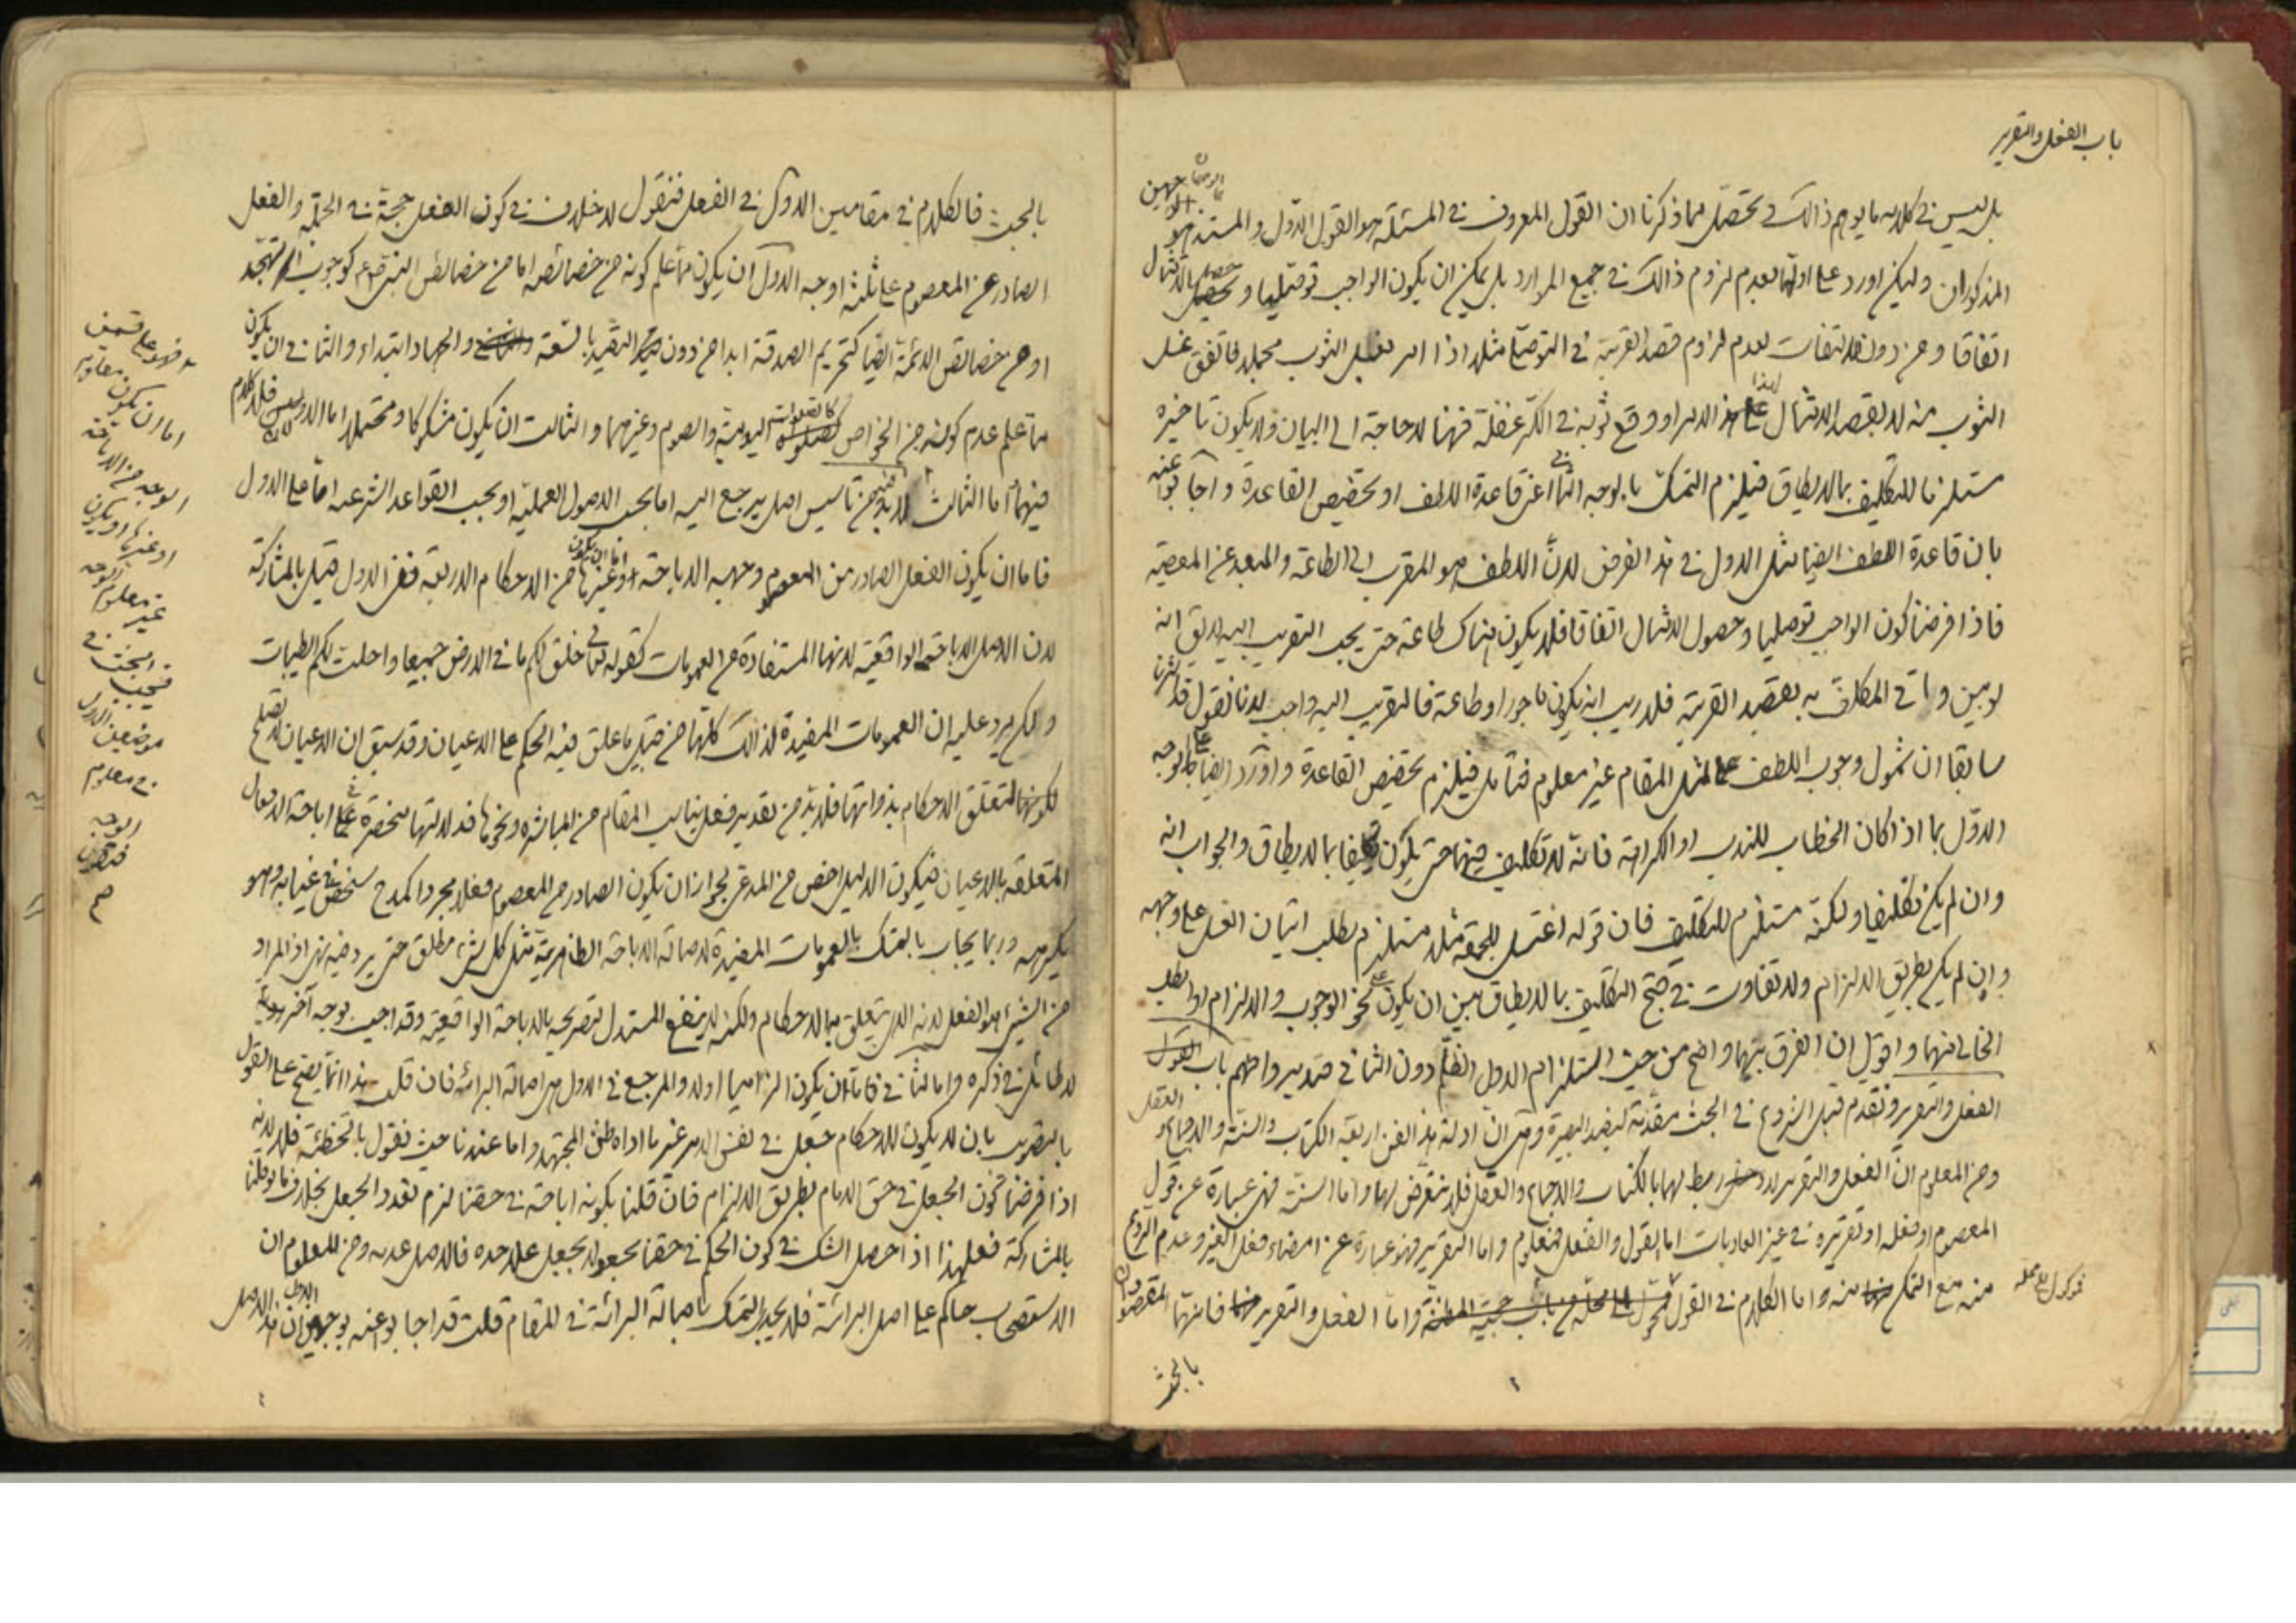 باب الفعل والتقرير
بل ليس في كلامه ما يوهم ذالك فتحصّل مما ذكرنا ان القول المعروف في المسئلة هو القول الاوّل والمستند هو الوجهين
المذكوران ولكن اورد على اولهما بعدم لزوم ذالك في جميع الموارد بل يمكن ان يكون الواجب توصّليا وحصل الامتثال
اتفاقا ومن دون التفات لعدم لزوم قصد القربة في التوصّلي مثلا اذا امر بغسل الثوب مجملا فاتفق غسل
الثوب منه لا بقصد الامتثال لهذا الامر او وقع ثوبه في الكر غفلة فهنا لا حاجة الى البيان فلا يكون تاخيره
مستلزما للتكليف بما لا يطاق فيلزم التمسك بالوجه الثاني اعني قاعدة اللطف او تخصيص القاعدة واجابوا عنه
بان قاعدة اللطف ايضا مثل الاول في هذا الفرض لانّ اللطف هو المقرب الى الطاعة والمبعد عن المعصية
فاذا فرضنا كون الواجب توصليا وحصول الامتثال اتفاقا فلا يكون هناك طاعة حتى يجب التقريب اليه لا يق انه
لو بين واتى المكلف به بقصد القربة فلا ريب انه يكون ماجورا وطاعة فالتقريب اليه واجب لانا نقول قد اشرنا
سابقا ان شمول وجوب اللطف لمثل المقام غير معلوم فتامل فيلزم تخصيص القاعدة واورد ايضا على الوجه
الاوّل بما اذا كان الخطاب للندب او الكراهة فانه لا تكليف فيهما حتى يكون تكليفا بما لا يطاق والجواب انه
وان لم يكن تكليفا ولكنّه مستلزم للتكليف فان قوله اغتسل للجمعة مثلا مستلزم يطلب اتيان الغسل على وجهه
وان لم يكن بطريق الالزام ولا تفاوت في قبح التكليف بما لا يطاق بين ان يكون على نحو الوجوب والالزام او الطلب
الخالي منهما واقول ان الفرق بينهما واضح من حيث استلزام الاول الظلم دون الثاني فتدبر وافهم باب القول
الفعل والتقرير ونقدم قبل الشروع في البحث مقدمة ليفيد البصيرة وهي انّ ادلة هذا الفن اربعة الكتاب والسنة والاجماع والعقل
ومن المعلوم انّ الفعل والتقرير لا ربط لهما بالكتاب والاجماع والعقل فلا نتعرض لها واما السنة فهي عبارة عن قول
المعصوم او فعله او تقريره في غير العاديات اما القول والفعل فمعلوم واما التقرير فهو عبارة عن امضاء فعل الغير وعدم الردع
منه مع التمكن منه واما الكلام في القول فموكول على محله واما الفعل والتقرير فانهما المقصودان
بالبحث
بالبحث فالكلام في مقامين الاول في الفعل فنقول لا خلاف في كون الفعل حجة في الجملة والفعل
الصادر عن المعصوم على ثلثة اوجه الاول ان يكون مما علم كونه من خصائصه اما من خصائص النبي ص كوجوب التهجّد
او من خصائص الائمة ايضا كتحريم الصدقة ابدا من دون التقييد بالسنة والجهاد ابتداء والثاني ان يكون
مما علم عدم كونه من الخواص كالصلوات اليومية والصوم وغيرهما والثالث ان يكون مشكوكا ومحتملا اما الاولان فلا كلام
فيهما اما الثالث فلا بد من تاسيس اصل يرجع اليه اما بحسب الاصول العملية او بحسب القواعد الشرعيه امّا على الاول
فاما ان يكون الفعل الصادر من المعصوم وجهه الاباحة او غيرها من الاحكام الاربعة ففي الاول قيل بالمشاركة
لان الاصل الاباحة الواقعية لانها المستفادة من العمومات كقوله تعالى خلق لكم ما في الارض جميعا واحلت لكم الطيبات
ولكن يرد عليه ان العمومات المفيدة لذالك كلها من قبيل ما علق فيه الحكم على الاعيان وقد سبق ان الاعيان لا تصلح
لكونها متعلق الاحكام بذواتها فلا بدّ من تقدير فعل يناسب المقام من المباشرة ونحوها فدلالتها منحصرة في اباحة الافعال
المتعلقة بالاعيان فيكون الدليل اخص من المدعى لجواز ان يكون الصادر من المعصوم فعلا مجردا كمدح شخص في غيابه وهو
يكرهه وربما يجاب بالتمسك بالعمومات المفيدة لاصالة الاباحة الظاهرية مثل كل شيء مطلق حتى يرد فيه نهى اذ المراد
من الشيء هو الفعل لانه الذي يتعلق به الاحكام ولكنه لا ينفع المستدل لتصريحه بالاباحة الواقعية وقد اجيب بوجه آخر
لا طائل في ذكره واما الثاني فاما ان يكون الزاميا اولا والمرجع في الاول هي اصالة البرائة فان قلت هذا انما يصح على القول
بالتصويب بان لا يكون للاحكام جعل في نفس الامر غير ما اداه ظن المجتهد واما عندنا حيث نقول بالتخطئة فلا لانه
اذا فرضنا كون الجعل في حق الامام بطريق الالزام فان قلنا بكونه اباحة في حقنا لزم تعدد الجعل بخلاف ما لو قلنا
بالمشاركة فعلى هذا اذا حصل الشك في كون الحكم في حقنا مجعولا بجعل على حده فالاصل عدمه ومن المعلوم ان
الاستصحاب حاكم على اصل البرائة فلا يجوز التمسك باصالة البرائة في المقام قلت قد اجابوا عنه بوجهين الاول ان هذا الاصل
فهو على قسمين
اما ان يكون معلوم
الوجه من الاباحة
او غيرها او يكون
غير معلوم الوجه
فيجب البحث في
موضعين الاول
في معلوم
الوجه
فنقول